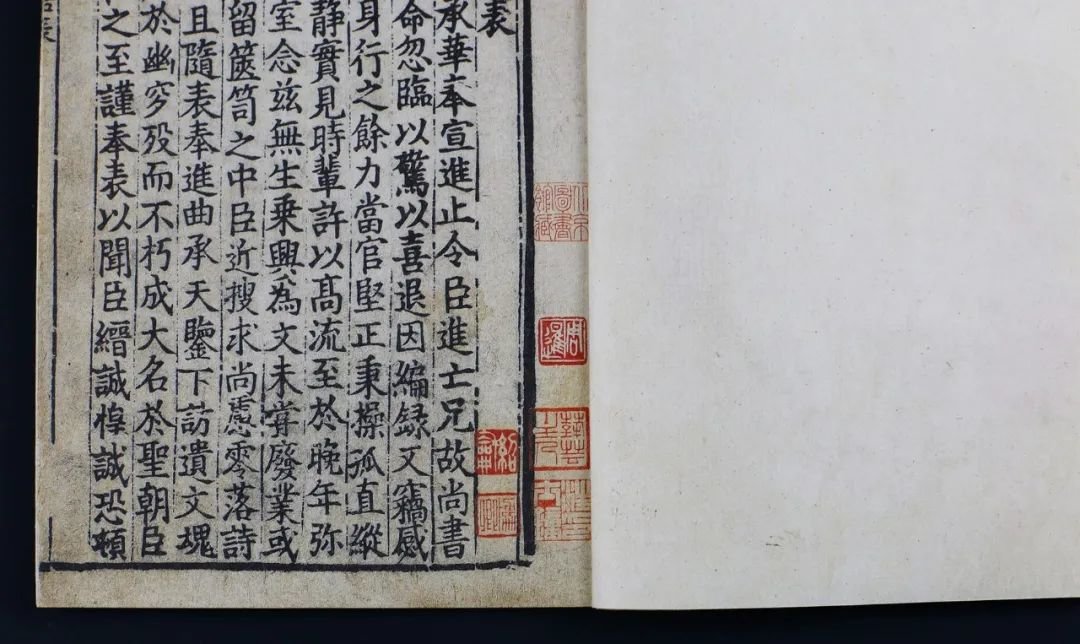 表
承華奉宣進止令臣進亡兄故尚書
命忽臨以驚以喜退因編録又竊感
身行之餘力當官堅正秉操孤直縱
靜實見時輩許以高流至於晚年弥
室念兹無生乗興為文未甞廢業或
留篋笥之中臣近搜求尚慮零落詩
且隨表奉進曲承天鑒下訪遺文魂
於幽穸殁而不朽成大名於聖朝臣
之至謹奉表以聞臣縉誠惶誠恐頓
表
北京圖書館藏
周暹
藝芸主人